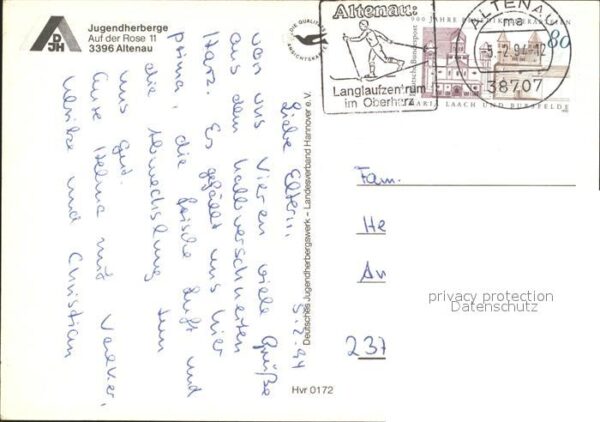 Jugendherberge
Auf der Rose 11
3396 Altenau
DJH
DIE QUALITÄTS
ANSICHTSKARTE
Altenau:
Langlaufzentrum
im Oberharz
ALTENAU
ma
-5.-2.94-12
38707
900 JAHRE
80
Deutsche Bundespost
MARIA LAACH UND BURSFELDE
5.2.94
Liebe Eltern,
von uns Vieren viele Grüße
aus dem halbverschneiten
Harz. Es gefällt uns hier
prima, die frische Luft und
die Abwechslung tun
uns gut.
Eure Helma mit
Ulrike und Christian
Deutsches Jugendherbergswerk – Landesverband Hannover e.V.
Hvr 0172
Fam.
He
An
237
privacy protection
Datenschutz